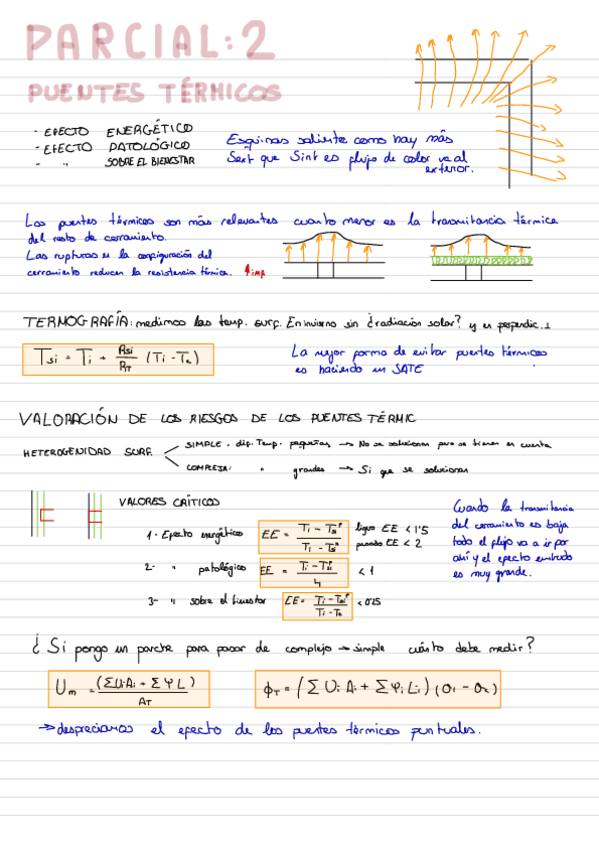 PARCIAL: 2
PUENTES TÉRMICOS
- EFECTO ENERGÉTICO
- EFECTO PATOLÓGICO
- " SOBRE EL BIENESTAR
Esquinas saliente como hay más
Sext que Sint es flujo de calor va al
exterior.
Los puentes térmicos son más relevantes cuanto menor es la transmitancia térmica
del resto de cerramiento.
Las rupturas en la configuración del
cerramiento reducen la resistencia térmica. 
TERMOGRAFÍA: medimos las temp. surf. En invierno sin ¿radiación solar? y en perpendic. ⊥
Tsi = Ti + Rsi/RT (Ti - Te)
La mejor forma de evitar puentes térmicos
es haciendo un SATE
VALORACIÓN DE LOS RIESGOS DE LOS PUENTES TÉRMIC
HETEROGENIDAD SURF.
SIMPLE. dif. Temp. pequeñas → No se solucionan pero se tienen en cuenta
COMPLEJA: " grandes → Si que se solucionan
VALORES CRÍTICOS
1- Efecto energético EE = Ti - Tsi^P / Ti - Tsi^n ligero EE < 1'5
pesado EE < 2
2- " patológico EE = Ti - Tsi^P / 4 < 1
3- " sobre el bienestar EE = Ti - Tsi^P / Ti - Te < 0'25
Cuando la transmitancia
del cerramiento es baja
todo el flujo va a ir por
ahí y el efecto
es muy grande.
¿Si pongo un parche para pasar de complejo → simple cuánto debe medir?
Um = (ΣUiAi + ΣΨL) / AT
ϕT = (ΣUi Ai + ΣΨi Li) (θi - θe)
→ despreciamos el efecto de los puentes térmicos puntuales.